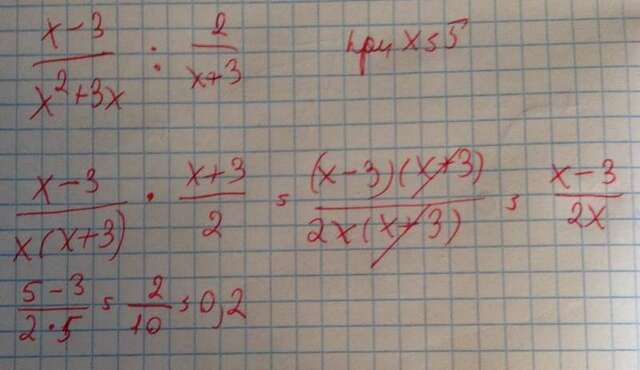 (x-3)/(x²+3x) : 2/(x+3) при x=5
(x-3)/(x(x+3)) · (x+3)/2 = ((x-3)(x+3))/(2x(x+3)) = (x-3)/(2x)
(5-3)/(2·5) = 2/10 = 0,2